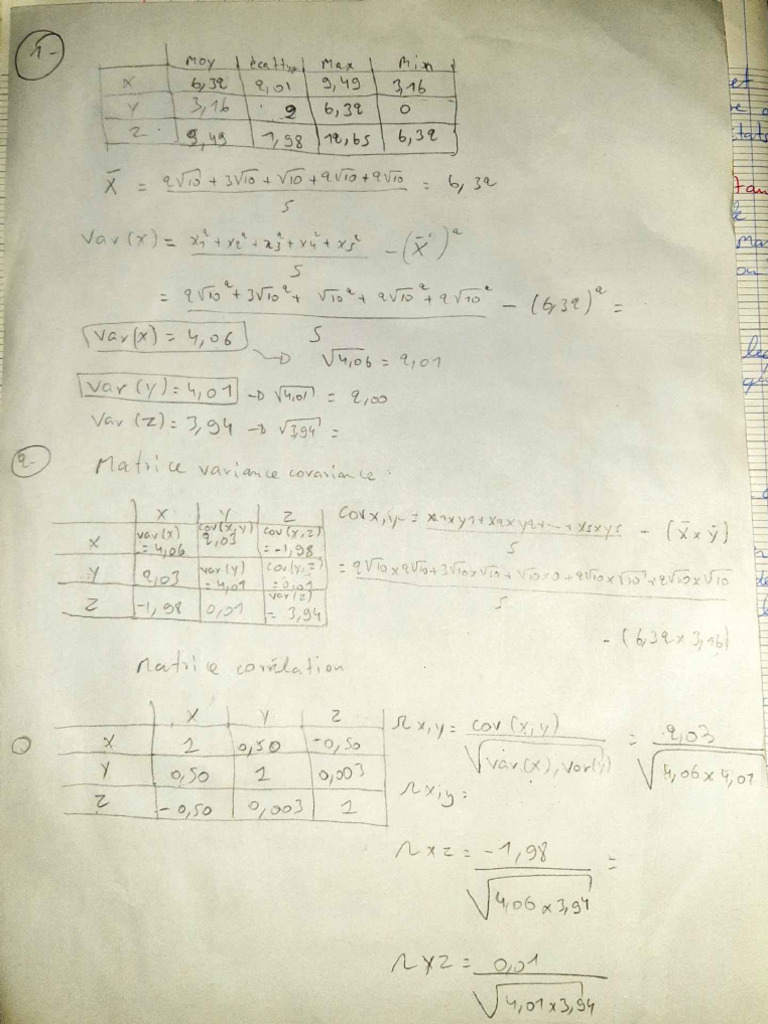 1-
Moy écattyp Max Min
X 6,32 2,01 9,49 3,16
Y 3,16 2 6,32 0
Z 9,49 1,98 12,65 6,32
X̄ = 2√10 + 3√10 + √10 + 2√10 + 2√10 / 5 = 6,32
Var(x) = x1² + x2² + x3² + x4² + x5² / 5 - (X̄)²
= 2√10² + 3√10² + √10² + 2√10² + 2√10² / 5 - (6,32)² =
Var(x) = 4,06 → √4,06 = 2,01
Var(y) = 4,01 → √4,01 = 2,00
Var(z) = 3,94 → √3,94 =
2- Matrice variance covariance :
X Y Z
X var(x) = 4,06 cov(x,y) 2,03 cov(x,z) = -1,98
Y 2,03 var(y) = 4,01 cov(y,z) = 0,01
Z -1,98 0,01 var(z) = 3,94
cov x,y = x1xy1 + x2xy2 + ... + x5xy5 / 5 - (x̄ x ȳ)
= 2√10 x 2√10 + 3√10 x √10 + √10 x 0 + 2√10 x √10 + 2√10 x √10 / 5
- (6,32 x 3,16)
Matrice corrélation
X Y Z
X 1 0,50 -0,50
Y 0,50 1 0,003
Z -0,50 0,003 1
r x,y = cov(x,y) / √var(x),var(y) = 2,03 / √4,06 x 4,01
r x,y =
r xz = -1,98 / √4,06 x 3,94 =
r yz = 0,01 / √4,01 x 3,94